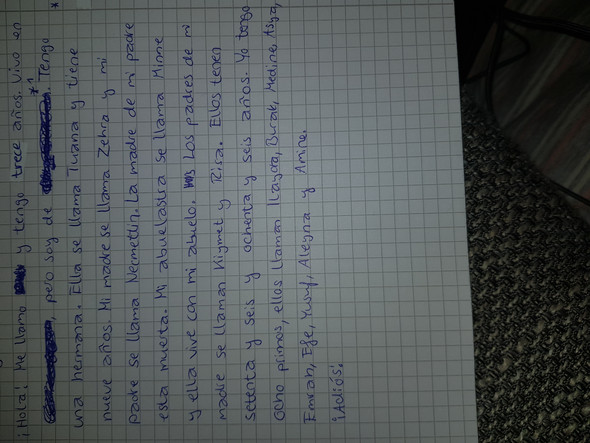 ¡Hola! Me llamo y tengo trece años. Vivo en
, pero soy de . *¹ Tengo *
una hermana. Ella se llama Tuana y tiene
nueve años. Mi madre se llama Zehra y mi
padre se llama Necmettin. La madre de mi padre
esta muerta. Mi abuelastra se llama Minne
y ella vive con mi abuelo. Los padres de mi
madre se llaman Kiymet y Riza. Ellos tenen
setenta y seis y ochenta y seis años. Yo tengo
ocho primos, ellos llaman Ilayda, Burak, Medine, Asya,
Emrah, Efe, Yusuf, Aleyna y Amine.
¡Adiós!